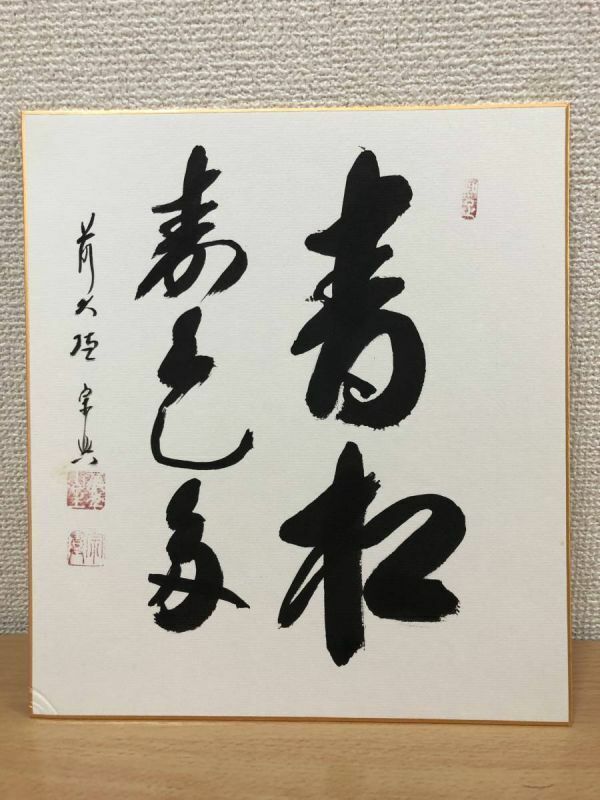 青松
寿色多
前大徳宗典